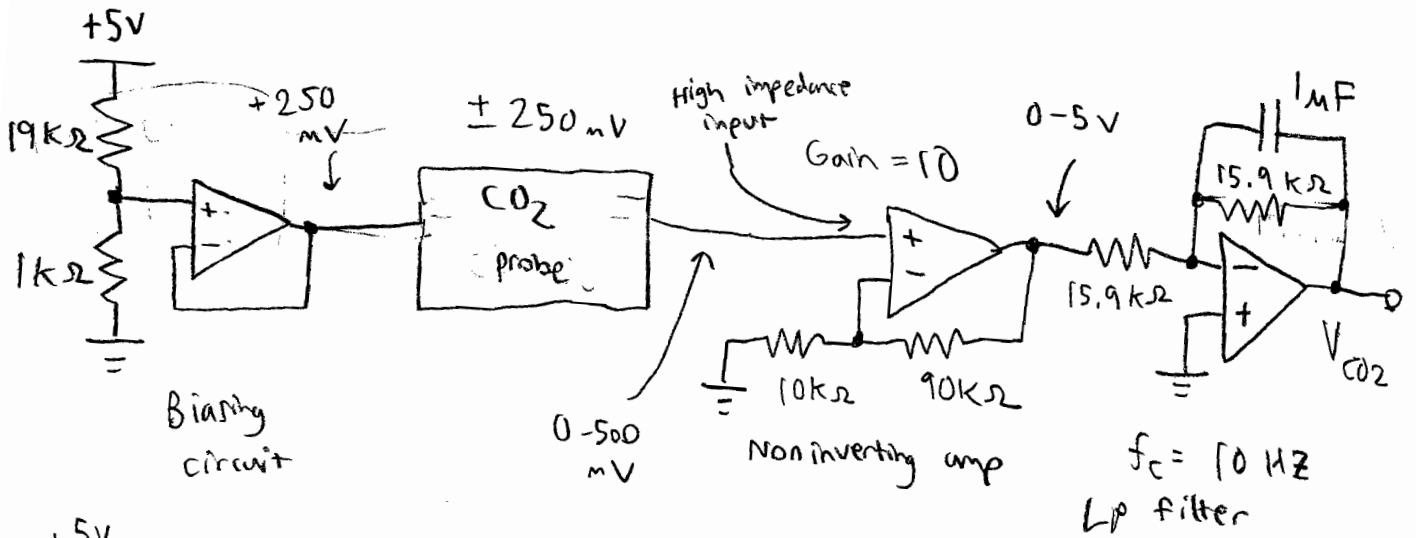 +5V
19kΩ
1kΩ
+250
mV
+
-
Biasing
circuit
± 250 mV
CO2
probe
0-500
mV
High impedance
input
Gain = 10
+
-
10kΩ
90kΩ
Noninverting amp
0-5V
15.9kΩ
1µF
15.9 kΩ
-
+
VCO2
fc = 10 HZ
LP filter
+5V